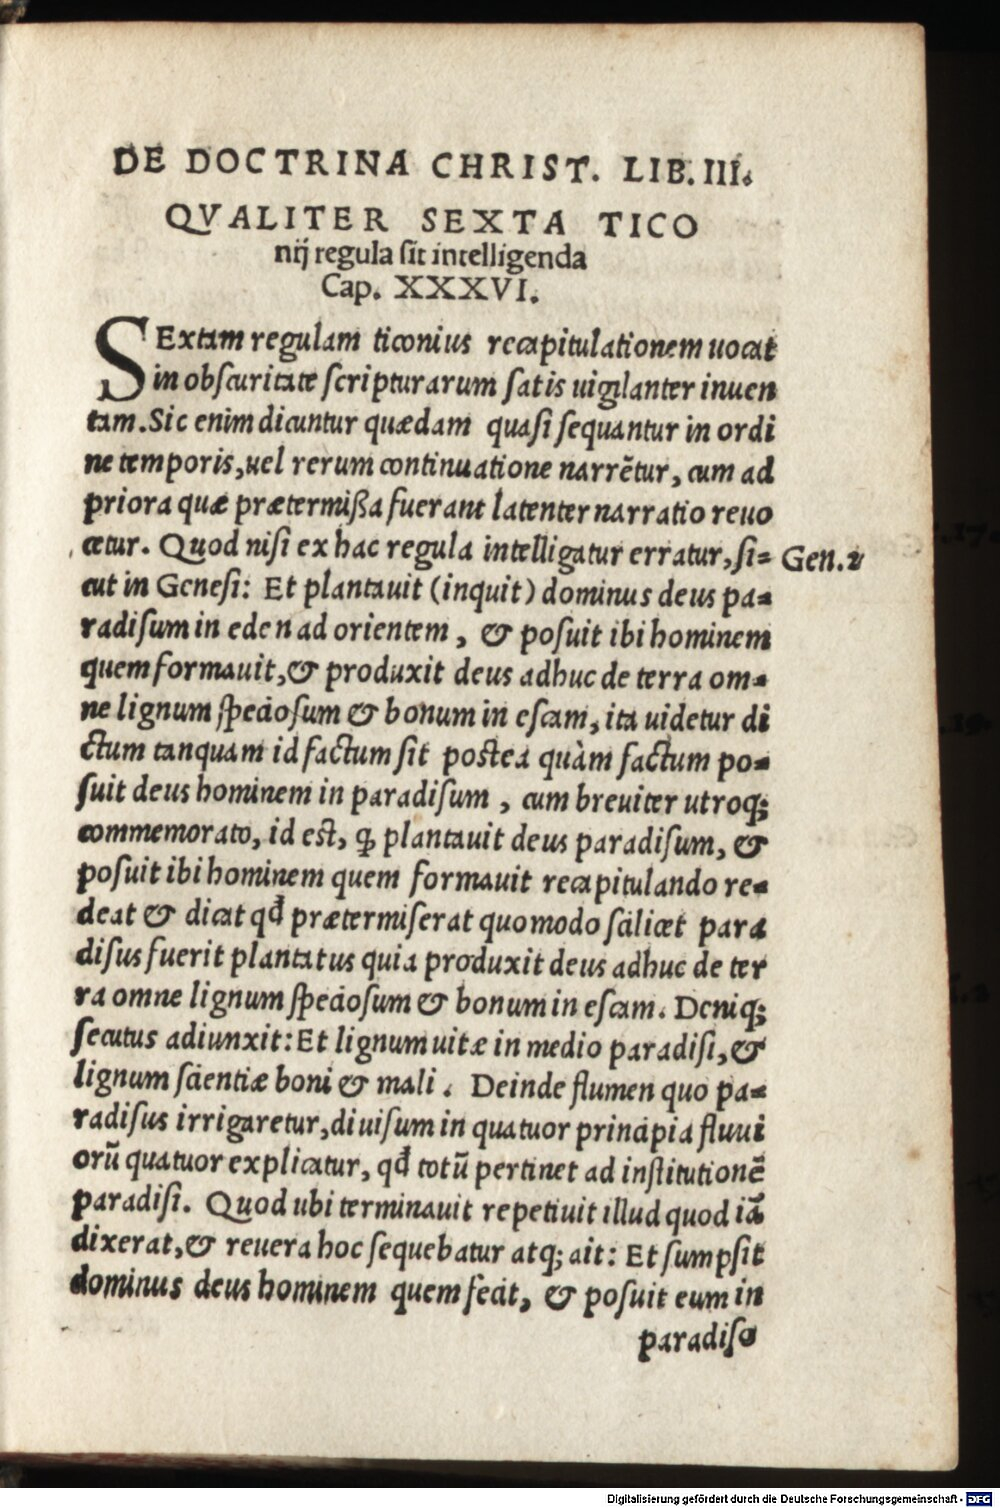 DE DOCTRINA CHRIST. LIB. III.
QVALITER SEXTA TICO
nij regula sit intelligenda
Cap. XXXVI.
SExtam regulam ticonius recapitulationem uocat
in obscuritate scripturarum satis uigilanter inuen
tam. Sic enim dicuntur quædam quasi sequantur in ordi
ne temporis, uel rerum continuatione narrētur, cum ad
priora quæ prætermißa fuerant latenter narratio reuo
cetur. Quod nisi ex hac regula intelligatur erratur, si=
Gen. 2
cut in Genesi: Et plantauit (inquit) dominus deus pa=
radisum in eden ad orientem, & posuit ibi hominem
quem formauit, & produxit deus adhuc de terra om=
ne lignum speciosum & bonum in escam, ita uidetur di
ctum tanquam id factum sit postea quàm factum po=
suit deus hominem in paradisum, cum breuiter utroq;
commemorato, id est, ꝙ plantauit deus paradisum, &
posuit ibi hominem quem formauit recapitulando re=
deat & dicat qđ prætermiserat quomodo scilicet para
disus fuerit plantatus quia produxit deus adhuc de ter
ra omne lignum speciosum & bonum in escam. Deniq;
secutus adiunxit: Et lignum uitæ in medio paradisi, &
lignum scientiæ boni & mali. Deinde flumen quo pa=
radisus irrigaretur, diuisum in quatuor principia fluui
orū quatuor explicatur, qđ totū pertinet ad institutionē
paradisi. Quod ubi terminauit repetiuit illud quod iā
dixerat, & reuera hoc sequebatur atq; ait: Et sumpsit
dominus deus hominem quem fecit, & posuit eum in
paradiso
Digitalisierung gefördert durch die Deutsche Forschungsgemeinschaft - DFG